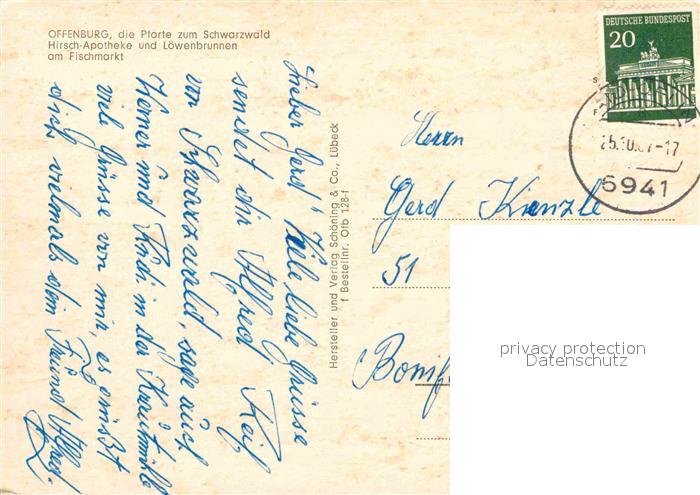 OFFENBURG, die Pforte zum Schwarzwald
Hirsch-Apotheke und Löwenbrunnen
am Fischmarkt
Lieber Gerd! Viele liebe Grüsse
sendet dir Alfred Keif
von Schwarzwald, sage auch
Heiner und Rudi in der Krautmühle
viele Grüsse von mir, es grüßt
dich vielmals dein Freund Alfred.
Hersteller und Verlag Schöning & Co., Lübeck
f Bestellnr. Ofb 128-f
DEUTSCHE BUNDESPOST
20
25.10.67-17
5941
Herrn
Gerd Kienzle
51
Bonif
privacy protection
Datenschutz